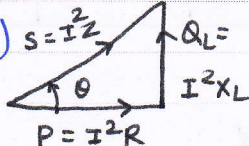 )
S = I²Z
Q_L =
I²X_L
θ
P = I²R